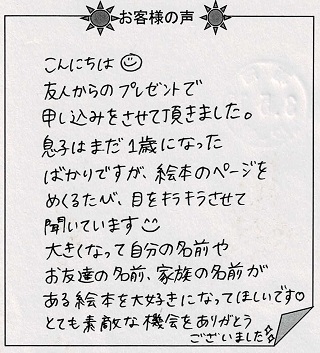 お客様の声
こんにちは
友人からのプレゼントで
申し込みをさせて頂きました。
息子はまだ1歳になった
ばかりですが、絵本のページを
めくるたび、目をキラキラさせて
聞いています
大きくなって自分の名前や
お友達の名前、家族の名前が
ある絵本を大好きになってほしいです♡
とても素敵な機会をありがとう
ございました